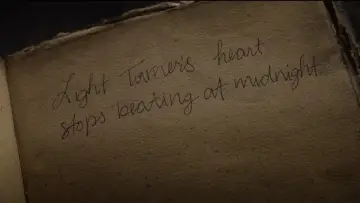 Light Turner's heart
stops beating at midnight